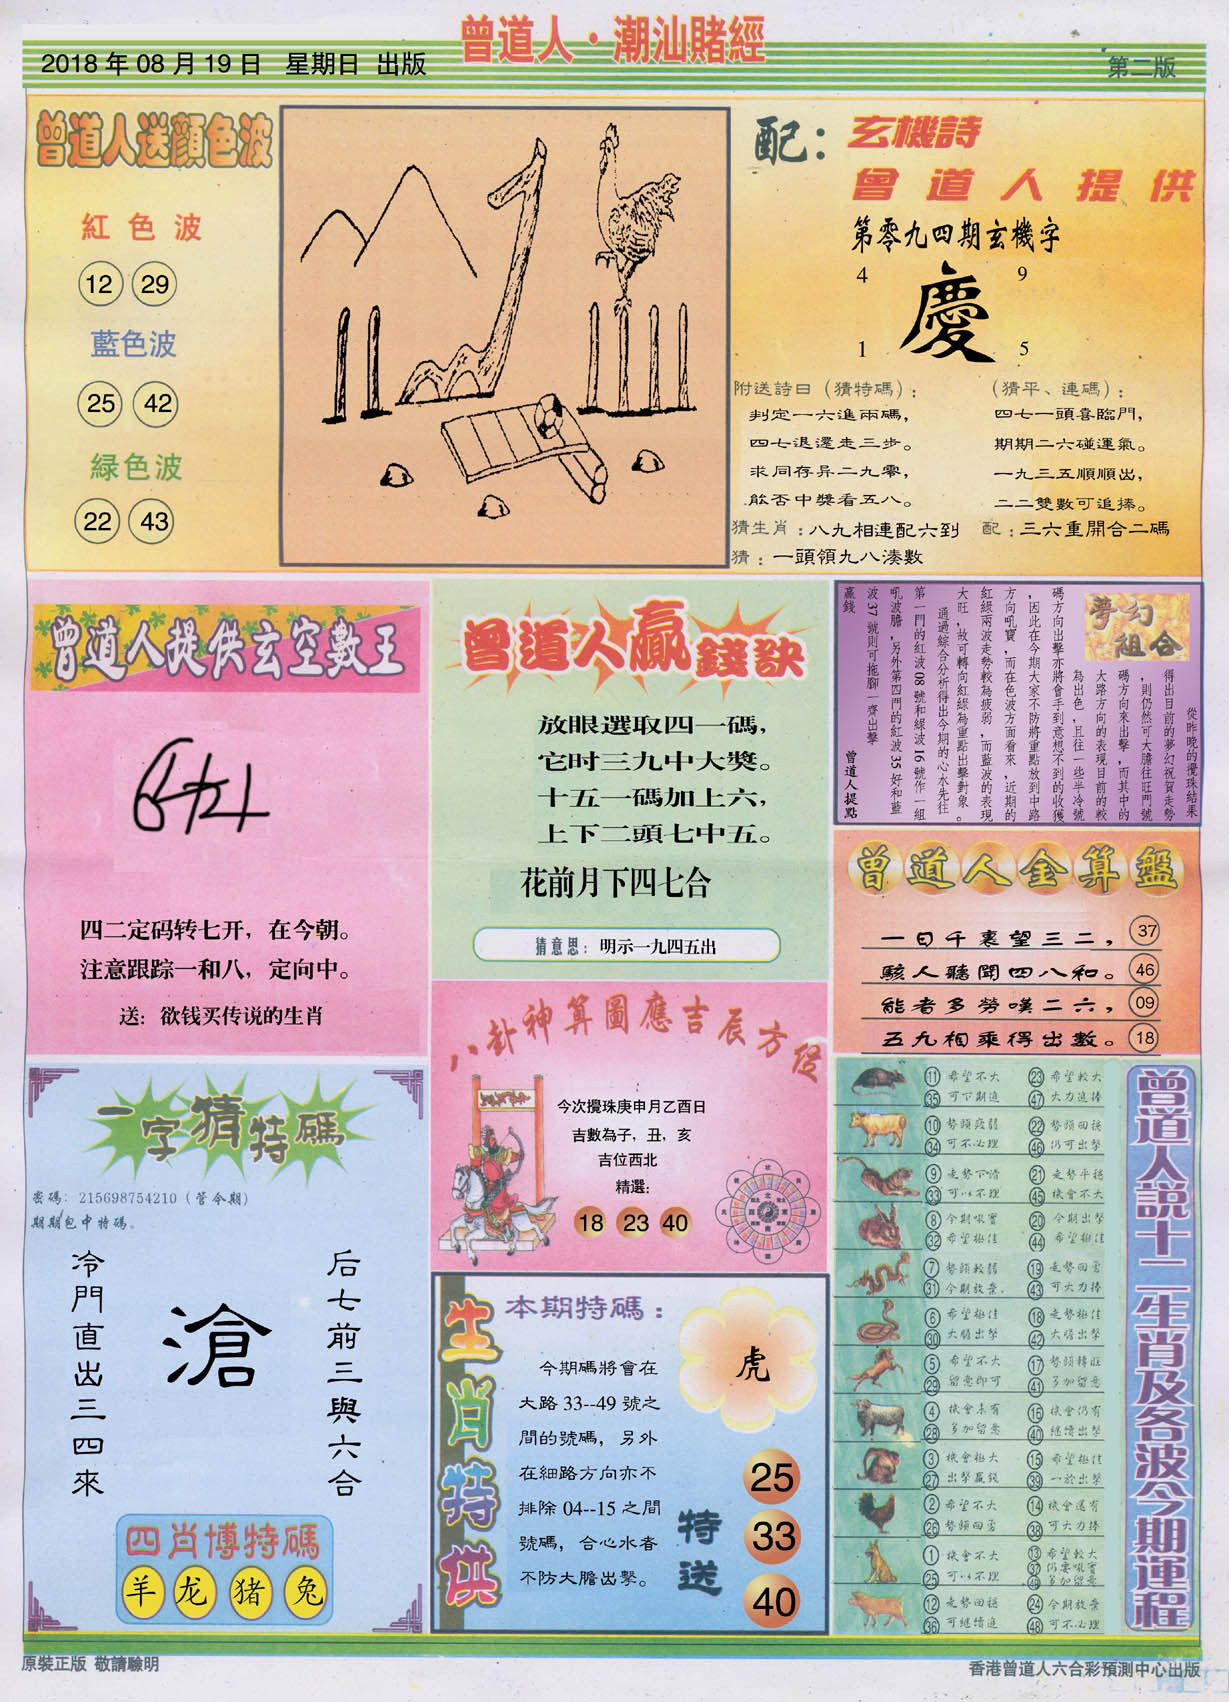 曾道人·潮汕賭經
2018年08月19日 星期日 出版
第二版
曾道人送顏色波
紅色波
12 29
藍色波
25 42
緑色波
22 43
配：玄機詩
曾道人提供
第零九四期玄機字
4 9
慶
1 5
附送詩曰（猜特碼）：
判定一六進兩碼，
四七退還走三步。
求同存异二九零，
能否中獎看五八。
（猜平、連碼）：
四七一頭喜臨門，
期期二六碰運氣。
一九三五順順出，
二二雙數可追捧。
猜生肖：八九相連配六到
配：三六重開合二碼
猜：一頭領九八湊數
曾道人提供玄空數王
四二定码转七开，在今朝。
注意跟踪一和八，定向中。
送：欲钱买传说的生肖
曾道人贏錢訣
放眼選取四一碼，
它时三九中大獎。
十五一碼加上六，
上下二頭七中五。
花前月下四七合
猜意思：明示一九四五出
夢幻組合
從昨晚的攪珠結果
得出目前的夢幻祝賀走勢
，則仍然可大膽往旺門號
碼方向來出擊，而其中的
大路方向的表現目前的較
為出色，且往一些半冷號
碼方向出擊亦將會手到意想不到的收獲
，因此在今期大家不防將重點放到中路
方向吼寶，而在色波方面看來，近期的
紅綠兩波走勢較為疲弱，而藍波的表現
大旺，故可轉向紅綠為重點出擊對象。
通過綜合分析得出今期的心水先往
第一門的紅波08號和綠波16號作一組
吼波膽，另外第四門的紅波35好和藍
波37號則可拖腳一齊出擊
贏錢
曾道人提點
曾道人金算盤
一日千裏望三二， 37
駭人聽聞四八和。 46
能者多勞嘆二六， 09
五九相乘得出數。 18
八卦神算圖應吉辰方位
今次攪珠庚申月乙酉日
吉數為子，丑，亥
吉位西北
精選：
18 23 40
一字猜特碼
密碼：215698754210（管今期）
期期包中特碼。
冷門直出三四來
滄
后七前三與六合
四肖博特碼
羊 龙 猪 兔
生肖特供
本期特碼：
虎
今期碼將會在
大路33--49號之
間的號碼，另外
在細路方向亦不
排除04--15之間
號碼，合心水者
不防大膽出擊。
特送
25
33
40
曾道人説十二生肖及各波今期運程
11 希望不大 23 希望較大
35 可下期追 47 大力追捧
10 勢頭疲弱 22 勢頭回穩
34 可不必理 46 仍可出擊
9 走勢下滑 21 走勢平穩
33 可以不理 45 機會不大
8 今期吼寶 20 今期出擊
32 希望極佳 44 希望極佳
7 勢頭較弱 19 走勢回勇
31 今期放棄 43 可大力捧
6 希望極佳 18 走勢極佳
30 大膽出擊 42 大膽出擊
5 希望不大 17 勢頭轉旺
29 留意即可 41 多加留意
4 機會未有 16 機會仍有
28 多加留意 40 繼續出擊
3 機會極大 15 希望極佳
27 出擊贏錢 39 一於出擊
2 希望不大 14 機會還有
26 勢頭回勇 38 可大力捧
1 機會不大 13 希望較大
25 可以不理 37 仍要吼實
49 多加留意
12 走勢回穩 24 今期放棄
36 可繼續追 48 可不必理
原裝正版 敬請驗明
香港曾道人六合彩預測中心出版